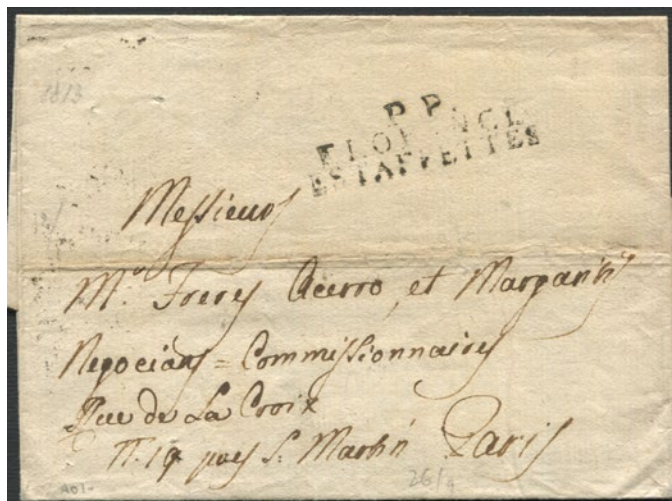 1813
P. P.
FLORENCE
ESTAFFETTES
Messieurs
Mrs Freres Acerro, et Margaritis
Negocians = Commissionnaires
Rue de La Croix
N. 19 pres St. Martin Paris
A01-